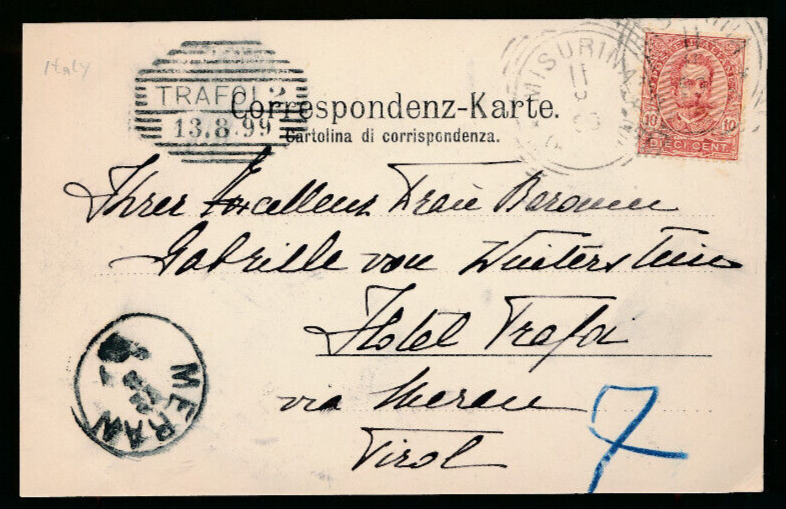 Italy
TRAFOI 2
13.8.99
Correspondenz-Karte.
Cartolina di corrispondenza.
MISURINA
11
10 10
DIECI CENT.
Ihrer Excellenz Frau Baronin
Gabrielle von Winterstein
Hotel Trafoi
via Meran
Tirol
MERAN
7